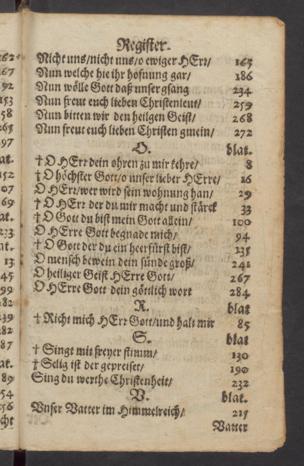 Register.
Nicht uns/nicht uns/o ewiger HErr/ 165
Nun welche hie ihr hofnung gar/ 186
Nun wölle Gott daß unser gsang 234
Nun freut euch lieben Christenleut/ 259
Nun bitten wir den heilgen Geist/ 268
Nun freut euch lieben Christen gmein/ 272
O. blat.
† O HErr dein ohren zu mir kehre/ 8
† O höchster Gott/o unser lieber HErre/ 16
O HErr/wer wird sein wohnung han/ 29
† O HErr der du mir macht und stärck 33
† O Gott du bist mein Gott allein/ 100
O HErre Gott begnade mich/ 94
† O Gott der du ein heerfürst bist/ 135
O mensch bewein dein sünde groß/ 241
O heiliger Geist HErre Gott/ 267
O HErre Gott dein götlich wort 284
R. blat.
† Richt mich HErr Gott/und halt mir 85
S. blat
† Singt mit freyer stimm/ 130
† Selig ist der gepreiset/ 190
Sing du werthe Christenheit/ 232
V. blat.
Vnser Vatter im Himmelreich/ 215
Vatter